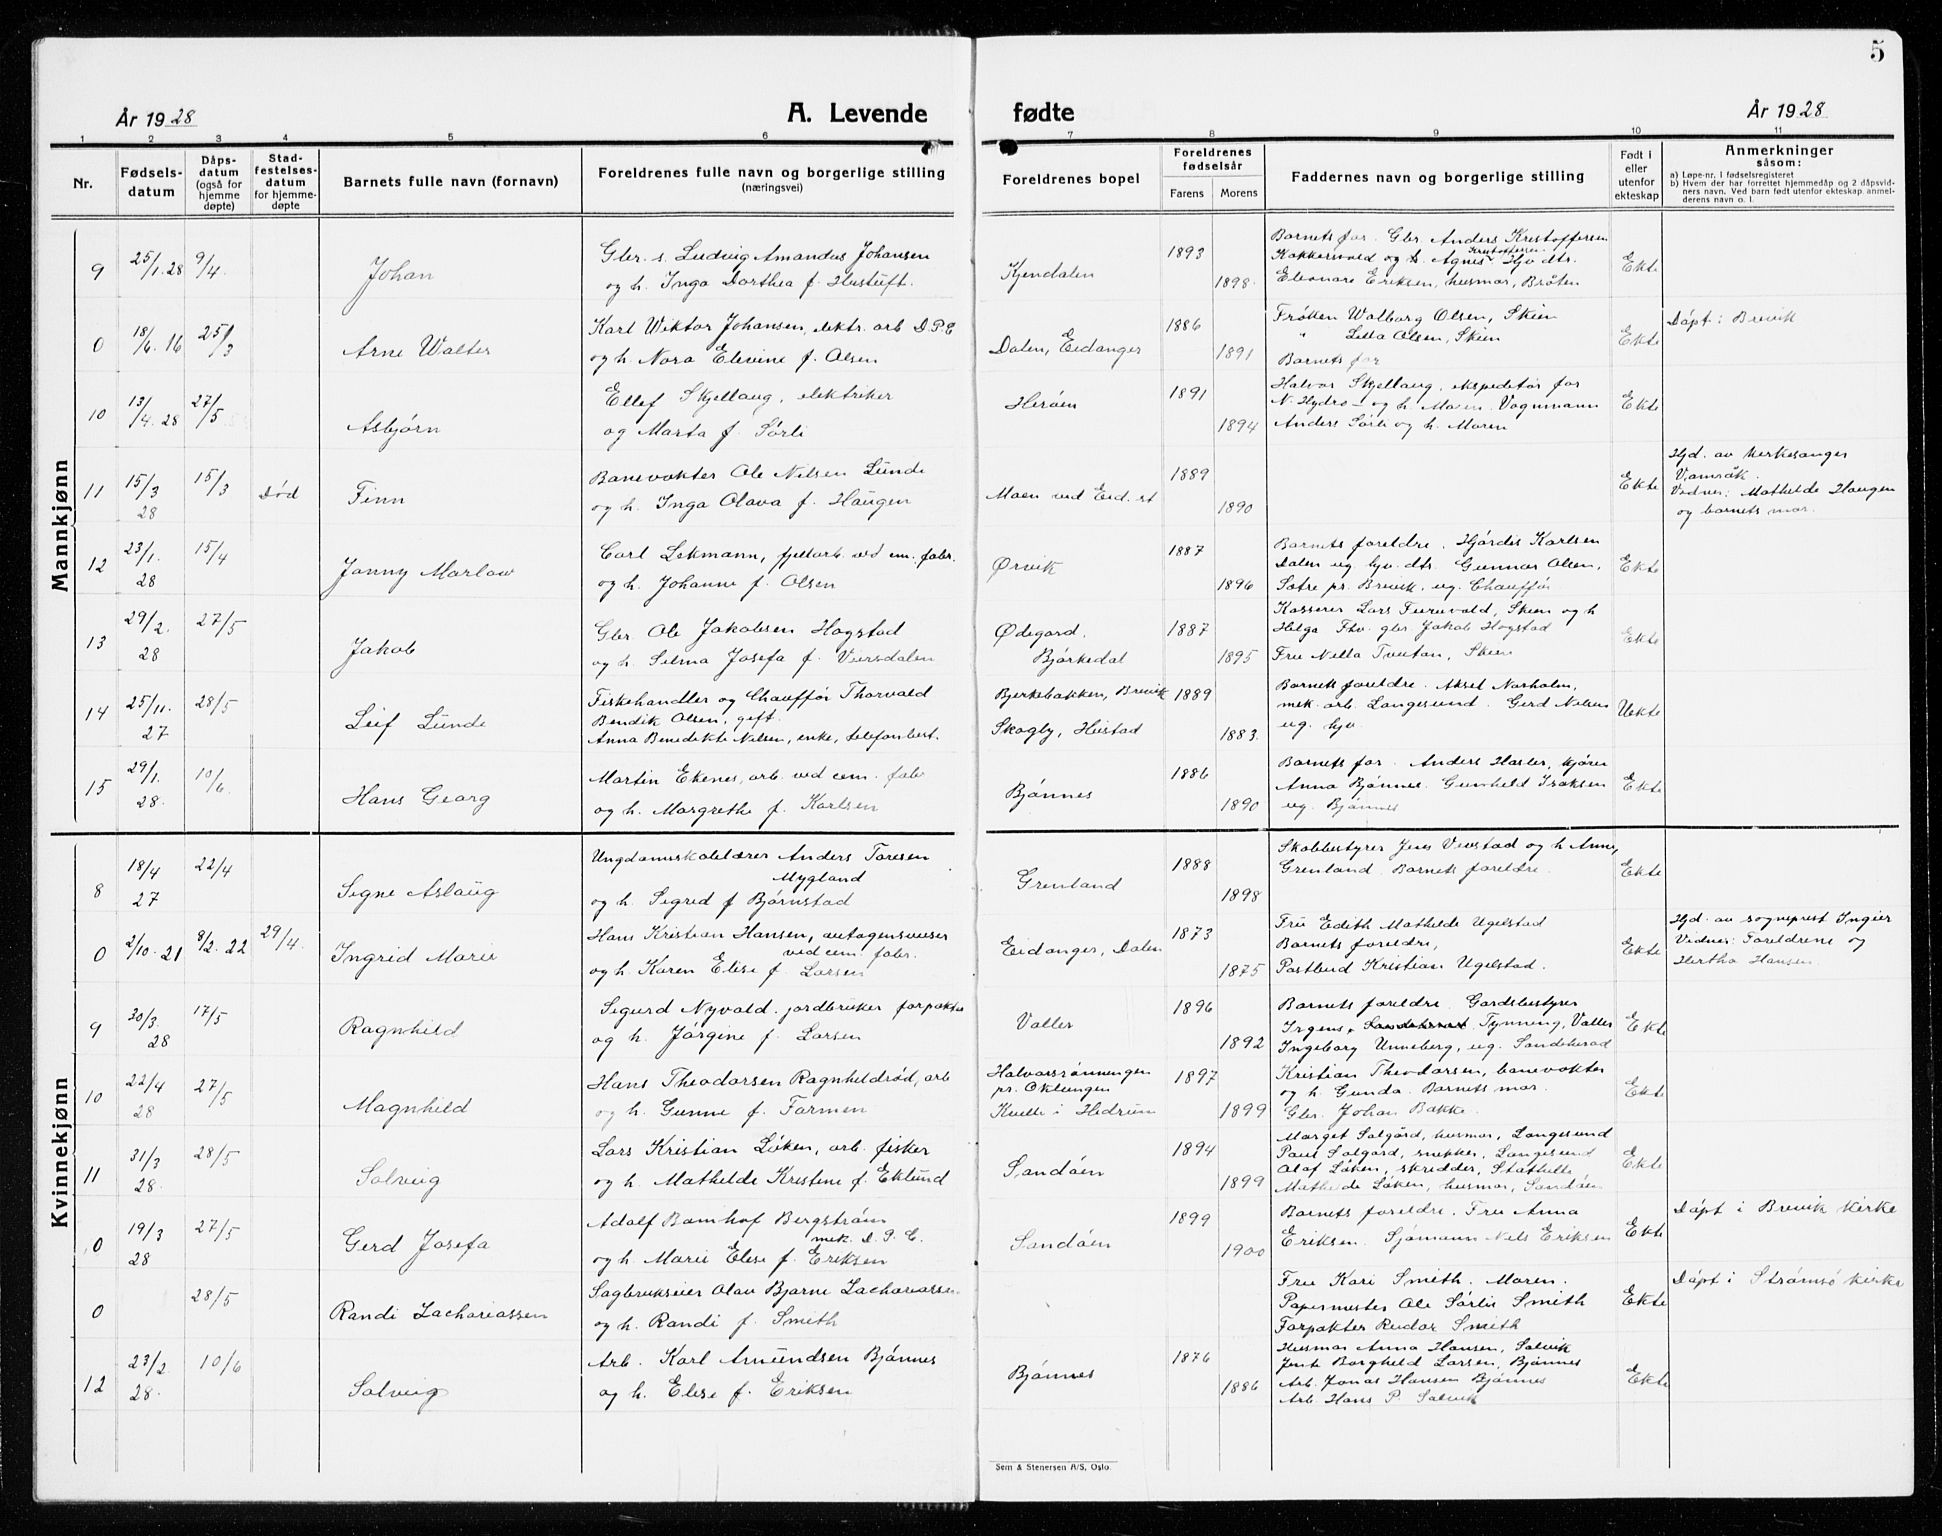 5
År 1928 A. Levende fødte År 1928
1 2 3 4 5 6 7 8 9 10 11
Nr. Fødsels- datum Dåps- datum (også for hjemme døpte) Stad- festelses- datum for hjemme- døpte Barnets fulle navn (fornavn) Foreldrenes fulle navn og borgerlige stilling (næringsvei) Foreldrenes bopel Foreldrenes fødselsår Farens Morens Faddernes navn og borgerlige stilling Født i eller utenfor ekteskap Anmerkninger såsom:
a) Løpe-nr. i fødselsregisteret
b) Hvem der har forrettet hjemmedåp og 2 dåpsvid-
ners navn. Ved barn født utenfor ekteskap anmel-
derens navn o. l.
Mannkjønn
9 25/1.28 9/4. Johan
Gbr. s. Ludvig Amandus Johansen
og h. Inga Dorthea f. Hustuft.
Kjendalen 1893 1898
Barnets far. Gbr. Anders Kristoffersen
Kokkersvold og h. Agnes Kristoffersen Hjv dtr.
Eleonare Eriksen, husmor, Bråten
Ekte
0 18/6.16 25/3 Arne Walter
Karl Wiktor Johansen, elektr. arb D.P.C
og h. Nora Elevine f. Olsen
Dalen, Eidanger 1886 1891
Frøken Walborg Olsen, Skien
" Lilla Olsen, Skien
Barnets far
Ekte
Døpt i Brevik
10 13/4.28 27/5 Asbjørn
Ellef Skjellaug, elektriker
og Marta f. Sørli
Herøen 1891 1894
Halvor Skjellaug, ekspeditør for
N. Hydro - og h. Maren. Vognmann
Anders Sørli og h. Maren
Ekte
11 15/3 28 15/3 Død Finn
Banevokter Ole Nilsen Lunde
og h. Inga Olava f. Haugen
Moen ved Eid. st 1889 1890
Ekte
Hjd. av kirkesanger
Vamråk.
Vidner: Mathilde Haugen
og barnets mor.
12 23/1. 28 15/4 Jonny Marlow
Carl Lekmann, fjellarb. ved cem. fabr.
og h. Johanne f. Olsen
Ørvik 1887 1896
Barnets foreldre. Hjørdis Karlsen
Dalen ug hjv. dtr. Gunnar Olsen,
Sætre pr. Brevik, ug. Chauffør
Ekte
13 29/2. 28 27/5 Jakob
Gbr. Ole Jakobsen Hogstad
og h. Selma Josefa f. Versdalen
Ødegård, Bjørkedal 1887 1895
Kasserer Lars Furuvald, Skien og h
Helga Fhv. gbr Jakob Hogstad
Fru Nella Tveitan, Skien
Ekte
14 25/11. 27 28/5 Leif Lunde
Fiskehandler og Chauffør Thorvald
Bendik Olsen, gift.
Anna Benedikte Nilsen, enke, telefonbest.
Bjerkebakken, Brevik 1889
Skogly, Heistad 1883.
Barnets foreldre. Aksel Norholm,
mek. arb. Langesund. Gerd Nilsen
ug. hjv.
Uekte
15 29/1. 28. 10/6. Hans Georg
Martin Ekenes, arb. ved cem. fabr
og h. Margrethe f. Karlsen
Bjønnes 1886 1890
Barnets far. Anders Hasler, kjører
Anna Bjønnes. Gunhild Isaksen
ug. Bjønnes
Ekte
Kvinnekjønn
8 18/4 27 22/4 Signe Aslaug
Ungdomsskolelærer Anders Toresen
Mygland
og h. Sigrid f Bjørnstad
Grenland 1888 1898
Skolebestyrer Jens Vevstad og h Anna,
Grenland. Barnets foreldre.
Ekte
0 2/10.21 8/2.22 29/4. Ingrid Marie
Hans Kristian Hansen, autogensveiser
ved cem. fabr.
og h. Karen Elise f. Larsen
Eidanger, Dalen 1873 1875
Fru Edith Mathilde Ugelstad
Barnets foreldre,
Postbud Kristian Ugelstad.
Ekte
Hjd. av sogneprest Ingier
Vidner: Foreldrene og
Hertha Hansen.
9 30/3. 28 17/5 Ragnhild
Sigurd Nyvald. jordbruker forpakter
og h. Jørgine f. Larsen
Valler 1896 1892
Barnets foreldre. Gårdsbestyrer
Tynning, Valler
Ingeborg Unneberg, ug. Sandeherad
Ekte
10 22/4 28 27/5 Magnhild
Hans Theodorsen Ragnhildrød, arb
og h. Gunne f. Farmen
Halvorsrønningen
pr. Oklungen
Kvelle i Hedrum 1897 1899
Kristian Theodorsen, banevokter
og h. Gunda. Barnets mor.
Gbr. Johan Bakke.
Ekte
11 31/3 28. 28/5 Solveig
Lars Kristian Løken, arb. fisker
og h. Mathilde Kristine f. Eklund
Sandøen 1894 1899
Marget Salgård, husmor, Langesund
Paul Salgård, snekker, Langesund
Olaf Løken, skredder, Stathelle,
Mathilde Løken, husmor, Sandøen
Ekte
0 19/3 28 27/5 Gerd Josefa
Adolf Bomhof Bergstrøm
mek. D. P. C.
og h. Marie Elise f. Eriksen
Sandøen 1899 1900
Barnets foreldre. Fru Anna
Eriksen. Sjømann Nils Eriksen
Ekte
Døpt i Brevik kirke
0 28/5 Randi Zachariassen
Sagbrukseier Olav Bjarne Zachariassen
og h. Randi f. Smith
Fru Kari Smith. Moren.
Papermester Ole Sørlie Smith
Forpakter Reidar Smith
Ekte
Døpt i Strømsø kirke
12 23/2. 28. 10/6 Solveig
Arb. Karl Amundsen Bjønnes
og h. Elise f. Eriksen
Bjønnes 1876 1886
Husmor Anna Hansen, Salvik
Jente Borghild Larsen, Bjønnes
Arb. Jonas Hansen Bjønnes
Arb. Hans P. Salvik
Ekte
Sem & Stenersen A/S, Oslo.